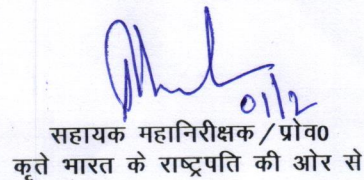 01/2
सहायक महानिरीक्षक / प्रोव0
कृते भारत के राष्ट्रपति की ओर से